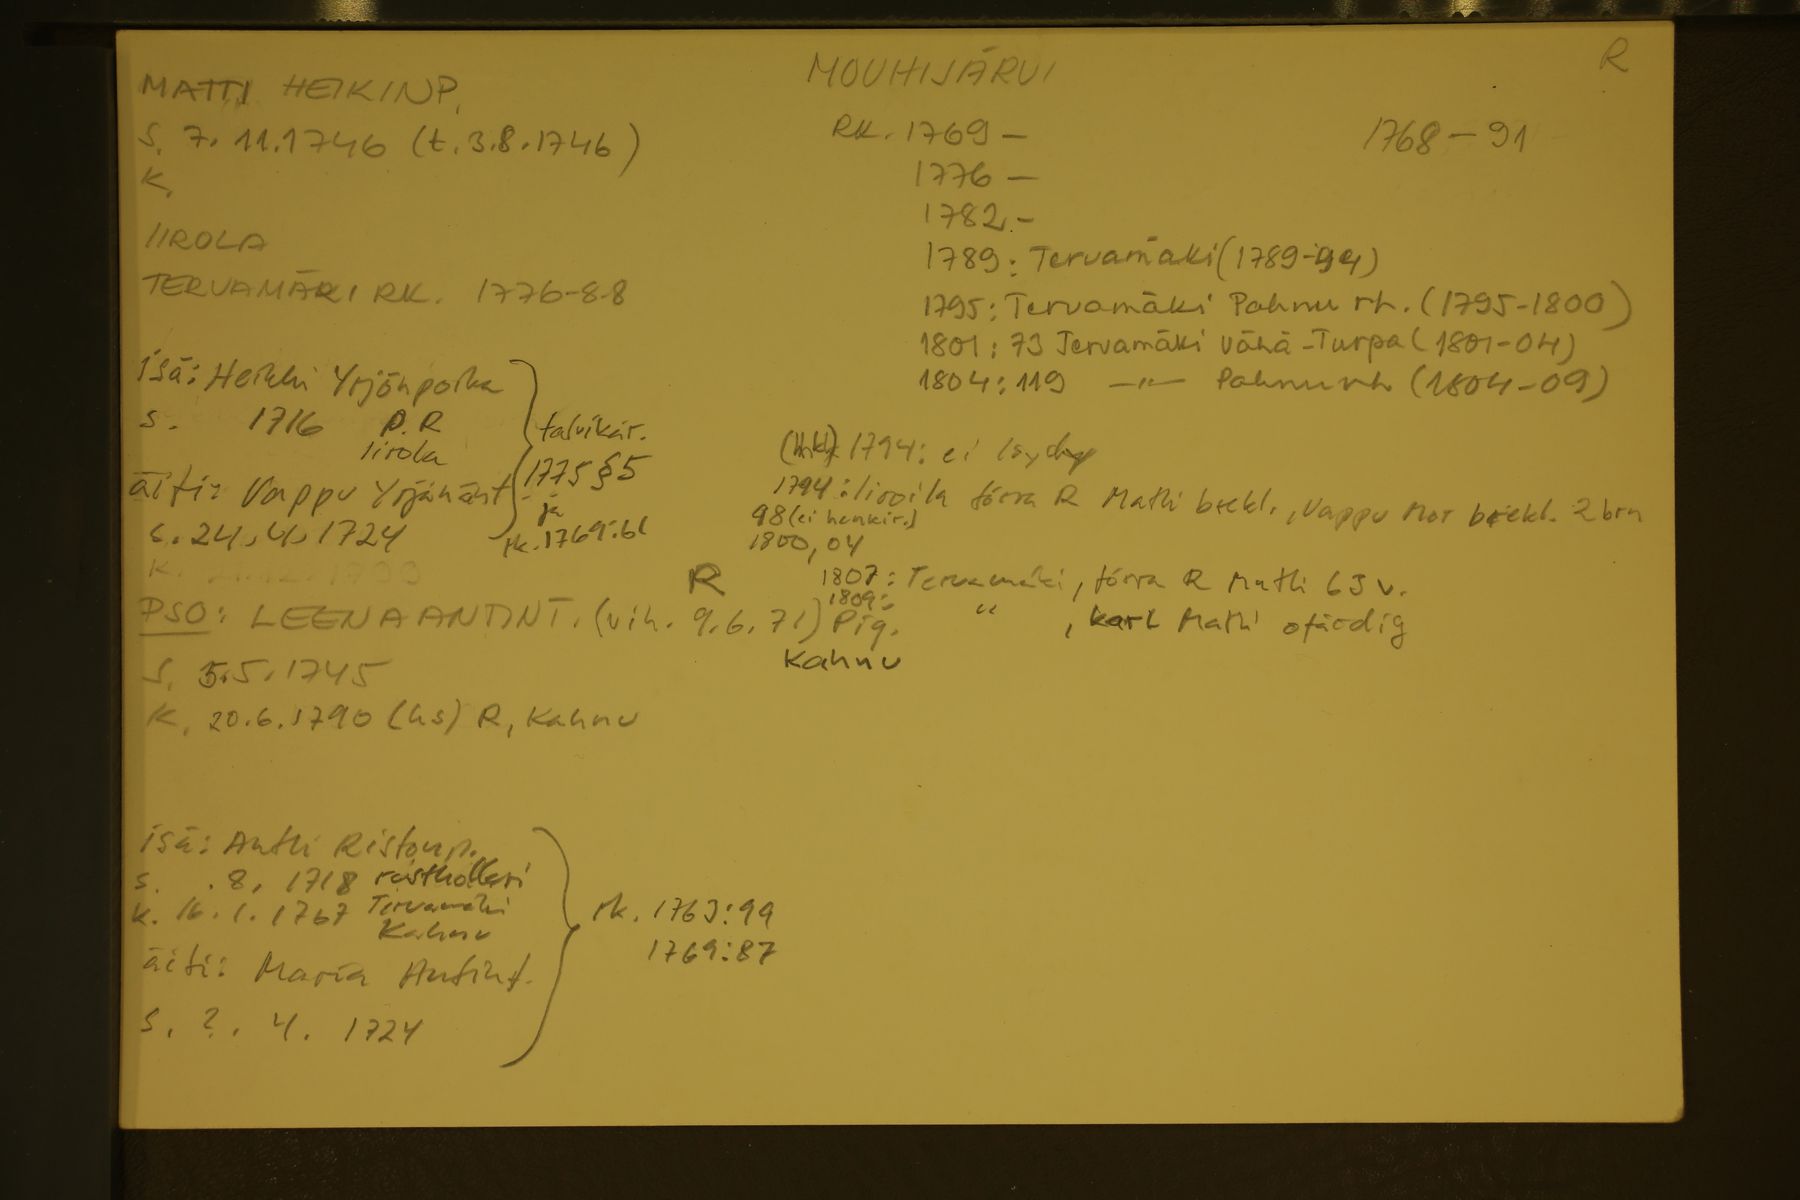 R
MOUHIJÄRVI
MATTI HEIKINP.
S. 7.11.1746 (t. 3.8.1746)
K.
IIROLA
TERVAMÄKI RK. 1776-88
RK. 1769 —
1768 — 91
1776 —
1782 -
1789: Tervamäki (1789-94)
1795: Tervamäki Pahnu rh. (1795-1800)
1801: 73 Tervamäki Vähä-Turpa (1801-04)
1804: 119 —"— Pahnu rh (1804-09)
isä: Heikki Yrjönpoika
s. 1716 p. R
Iirola
äiti: Vappu Yrjänänt.
s. 24.4.1724
talvikär.
1775 § 5
ja
rk. 1769:61
(hnk) 1794: ei löydy
1794: Iiroila förra R Matti bräkl., Vappu Mor bräkl. 2 brn
98 (ei henkir.)
1800, 04
1807: Tervamäki, förra R Matti 63 v.
1809: " , karl Matti ofärdig
PSO: LEENA ANTINT. (vih. 9.6.71) Pig.
R
Kahnu
S. 5.5.1745
K. 20.6.1790 (hs) R, Kahnu
isä: Antti Ristonp.
s. .8. 1718 rustholleri
k. 16.1.1767 Tervamäki
Kahnu
äiti: Maria Antint.
s. ?. 4. 1724
rk. 1763:99
1769:87